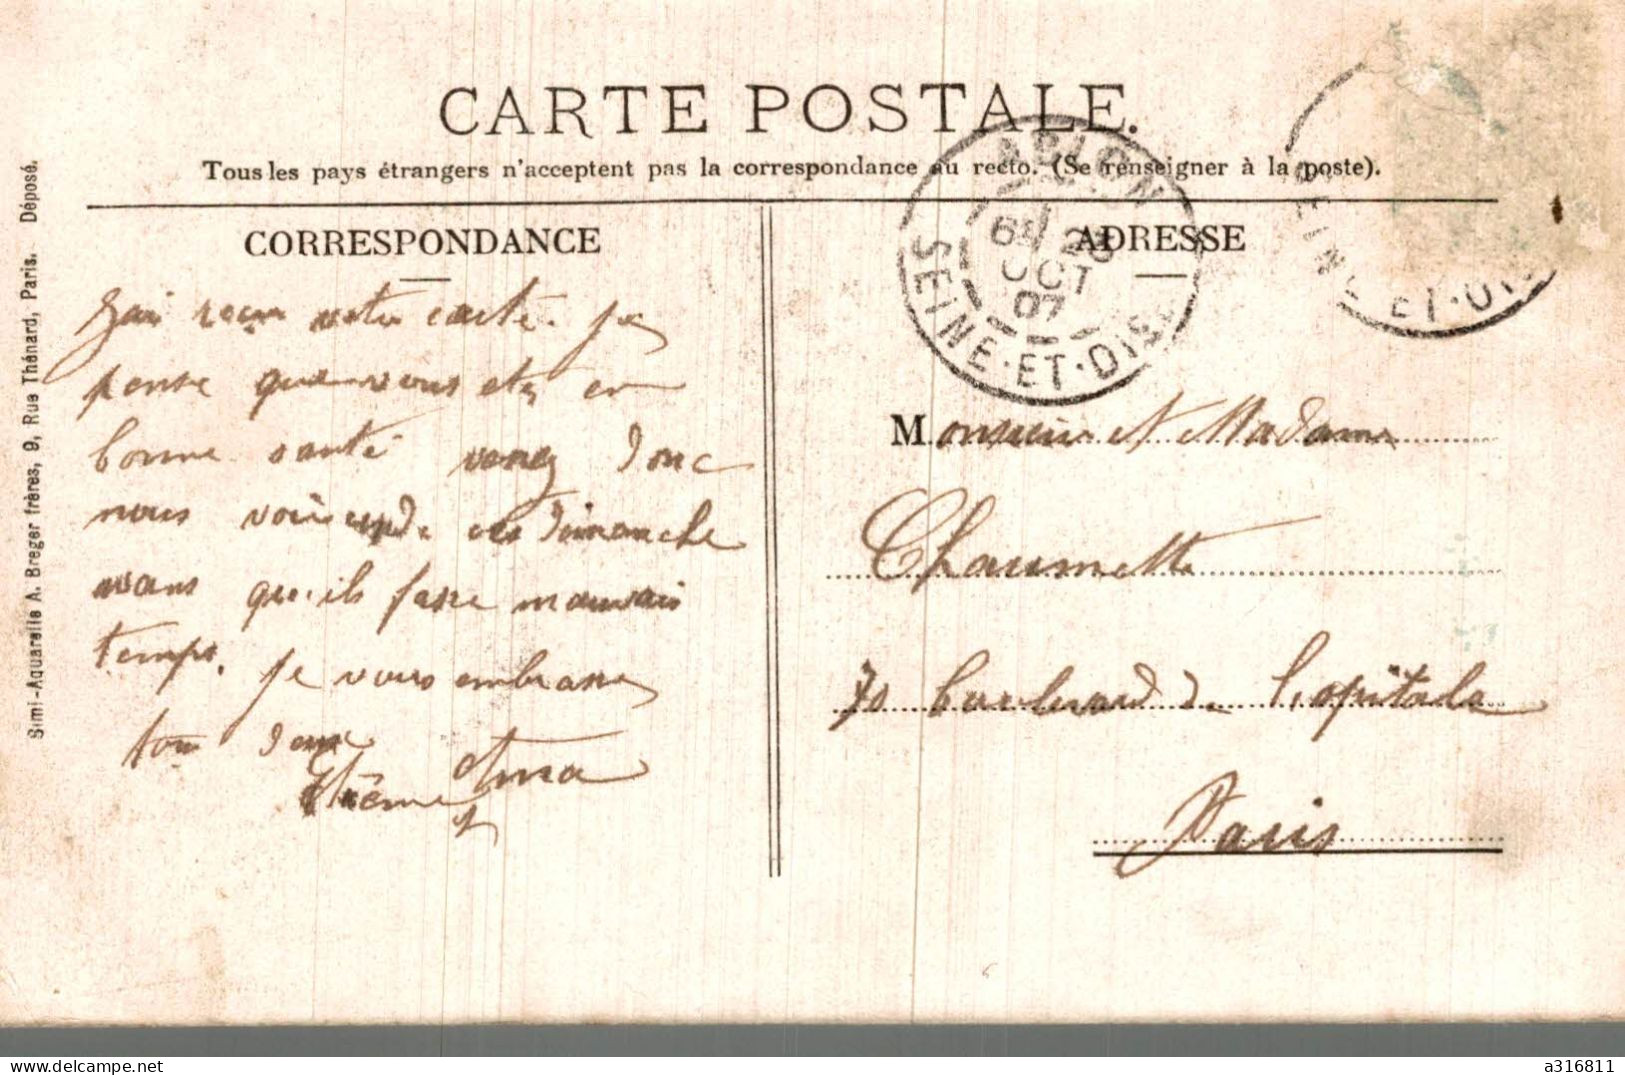 CARTE POSTALE.
Tous les pays étrangers n'acceptent pas la correspondance au recto. (Se renseigner à la poste).
Simi-Aquarelle A. Breger frères, 9, Rue Thénard, Paris. Déposé.
CORRESPONDANCE
J'ai reçu votre carte. je
pense que vous etes en
bonne santé venez donc
nous voir un de ces dimanche
avans que ils fasse mauvais
temps. je vous embrasse
tous deux
Anna
ADRESSE
ABLON
23
OCT
07
SEINE-ET-OISE
SEINE-ET-OISE
Monsieur et Madame
Chaumette
70 boulevard de l'opitale
Paris
a316811